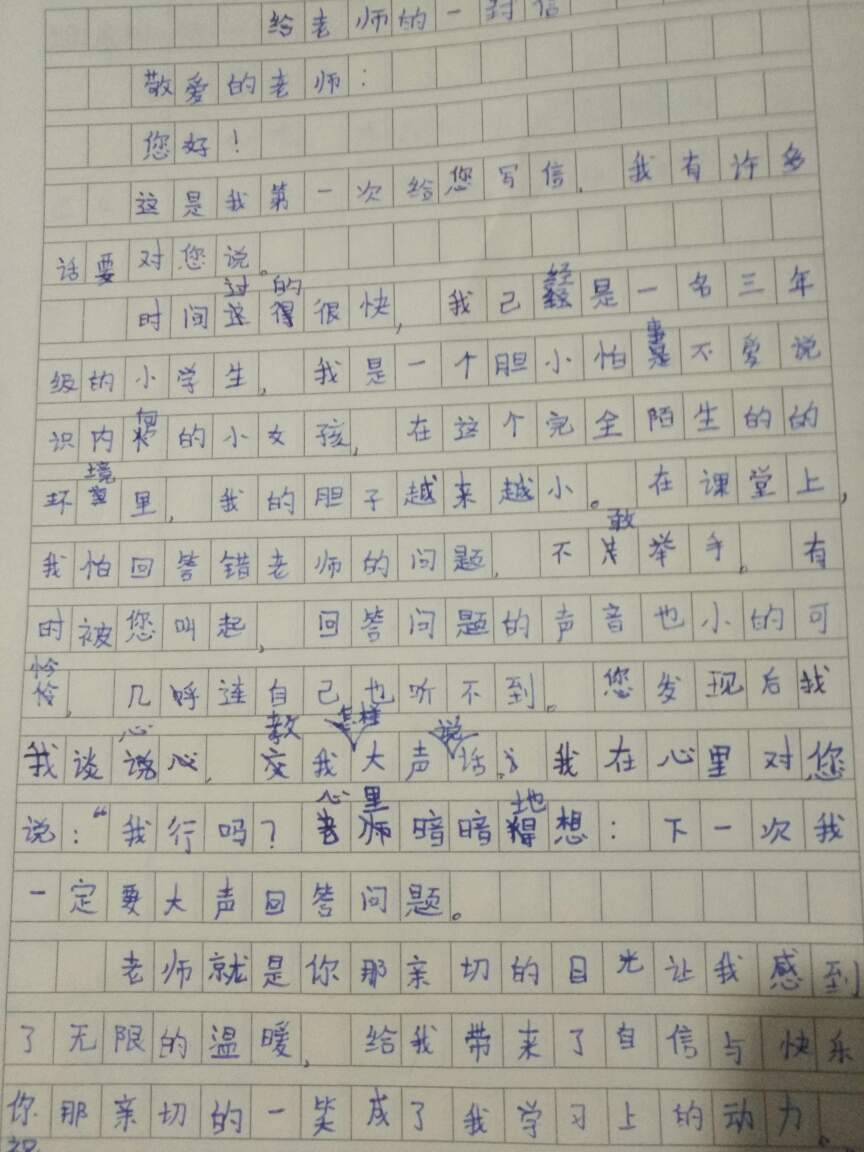 给老师的一封信
敬爱的老师：
您好！
这是我第一次给您写信. 我有许多
话要对您说。
过的
时间这得很快, 我己经是一名三年
级的小学生, 我是一个胆小怕事不爱说
识内向的小女孩, 在这个完全陌生的的
环境里, 我的胆子越来越小。在课堂上,
敢
我怕回答错老师的问题, 不是举手。有
时被您叫起, 回答问题的声音也小的可
怜, 几呼连自己也听不到。您发现后我
心 教 怎样 说
我谈说心, 交我大声话。我在心里对您
心里 地
说：“我行吗？老师暗暗得想：下一次我
一定要大声回答问题。
老师就是你那亲切的目光让我感到
了无限的温暖, 给我带来了自信与快乐
你那亲切的一笑成了我学习上的动力.
祝